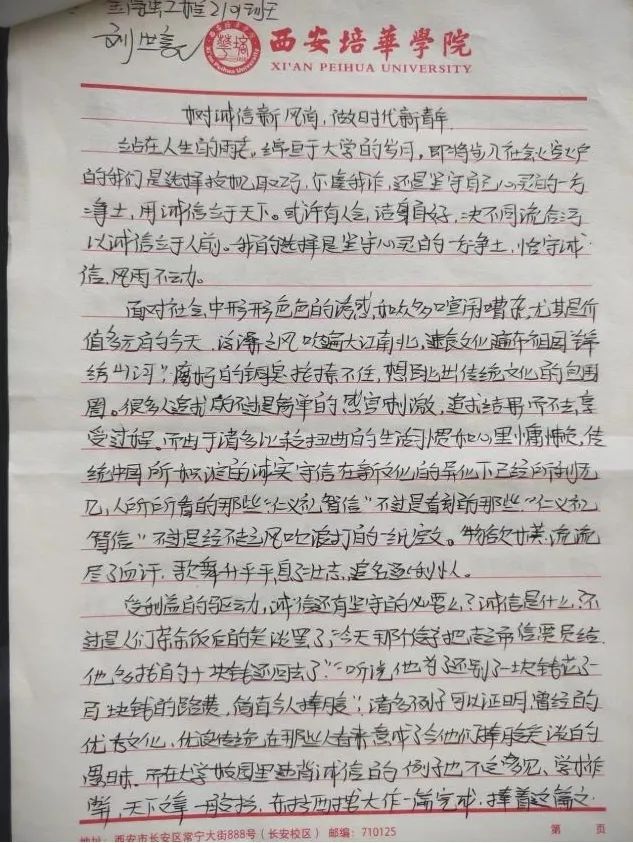 219班
刘世豪
西安培華學院
XI'AN PEIHUA UNIVERSITY
树诚信新风尚，做时代新青年
站在人生的雨巷。绵亘于大学的岁月，即将步入社会
的我们是选择投机取巧，尔虞我诈，还是坚守自己心灵的一方
净土，用诚信立于天下。或许有人会，洁身自好，决不同流合污
以诚信立于人前。我的选择是坚守心灵的一方净土，恪守诚
信，风雨不动。
面对社会中形形色色的诱惑，如众多喧闹嘈杂，尤其是价
值多元的今天，浮澡之风吹遍大江南北，速食文化遍布祖国
绣山河"，腐朽的铜臭抵挡不住，想图逃出传统文化的包围
圈。很多人追求的不过是简单的感官刺激，追求结果而不去享
受过程。而由于诸多比较扭曲的生活习惯如心里慵懒，传
统中国所标志的诚实守信在新文化的异化下已经所剩无
几，人们所看的那些"仁义礼智信"不过是看到前那些"仁义礼
智信"不过是经不住风吹浪打的一纸空文。物欲世美，流流
尽了血汗，歌舞升平，息了壮志，追名逐利
受利益的驱动，诚信还有坚守的必要么？诚信是什么，不
过是人们茶余饭后的笑谈罢了，"今天那个傻子把超市售票员给
他多找的十块钱还回去了""听说他为了还别人一块钱花了一
百块钱的路费，简直令人捧腹"，诸多例子可以证明，曾经的
优秀文化，优良传统，在那些人看来意味了令他们捧腹笑谈的
愚昧。而在大学校园里悖诚信的例子也不足多见，学术作
弊，天下文章一般抄，东抄西抄大作一篇完成，捧着这篇文
地址：西安市长安区常宁大街888号（长安校区） 邮编：710125
第 页